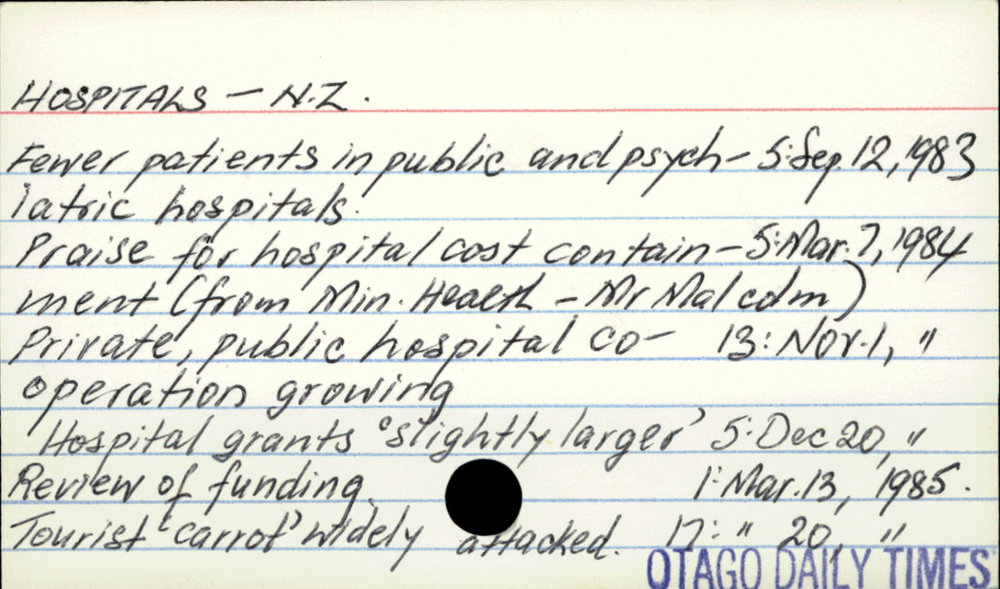 HOSPITALS — N.Z.
Fewer patients in public and psych- 5: Sep. 12, 1983
iatric hospitals.
Praise for hospital cost contain- 5: Mar. 7, 1984
ment (from Min. Health - Mr Malcolm)
Private, public hospital co- 13: Nov. 1, "
operation growing
Hospital grants 'slightly larger' 5: Dec 20, "
Review of funding. 1: Mar. 13, 1985.
Tourist 'carrot' widely attacked. 17: " 20, "
OTAGO DAILY TIMES